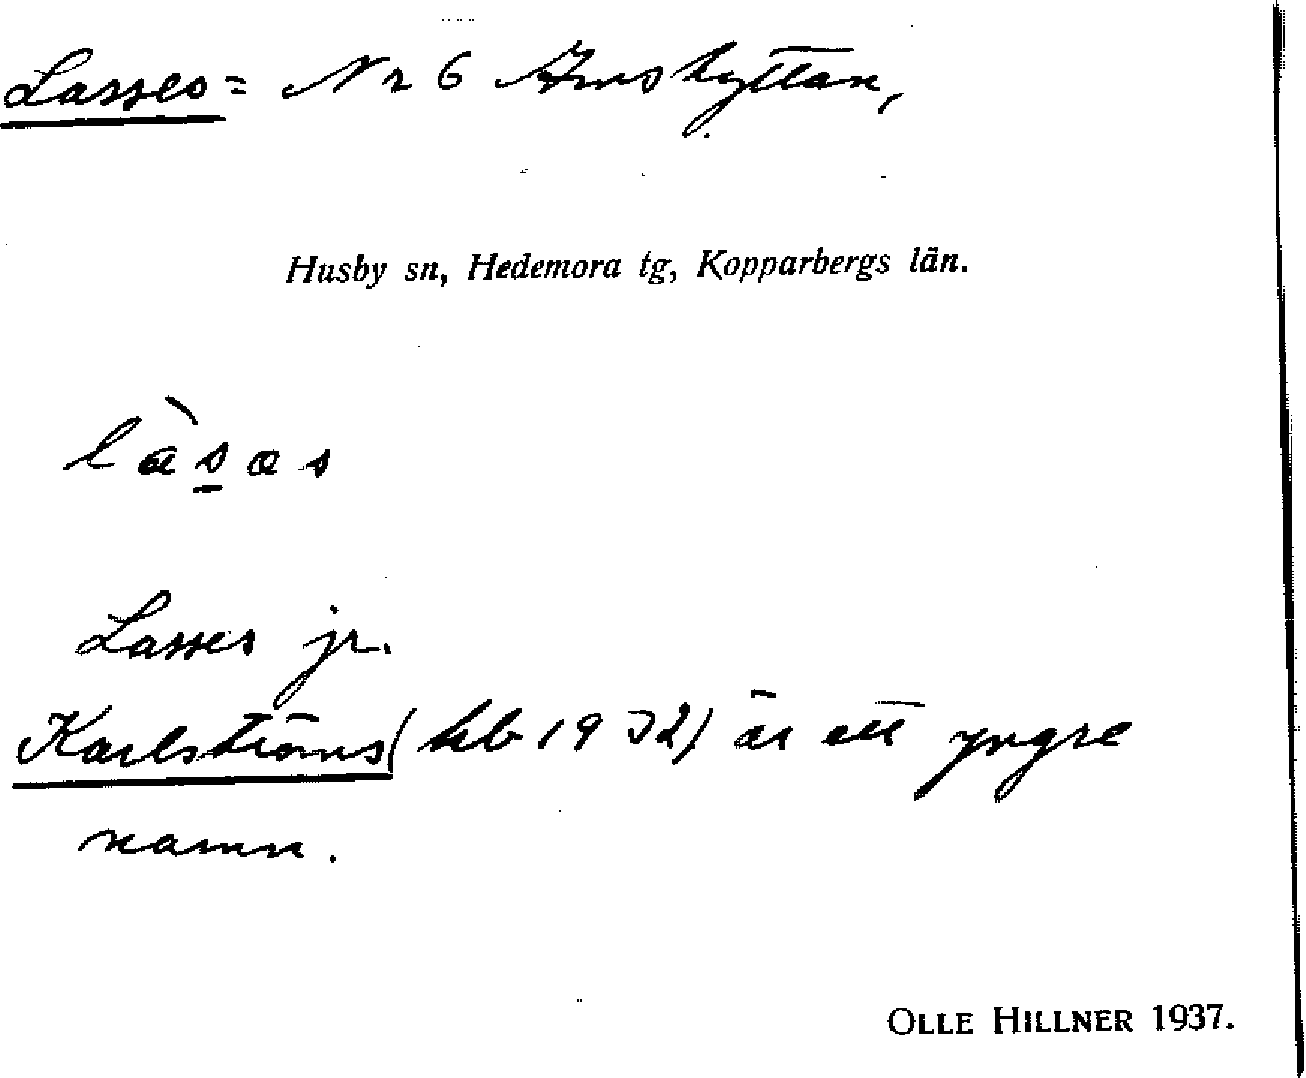 Lasses = Nr 6 Arnshyttan,
Husby sn, Hedemora tg, Kopparbergs län.
làsas
Lasses jr.
Karlströms (kb 1932) är ett yngre
namn.
OLLE HILLNER 1937.